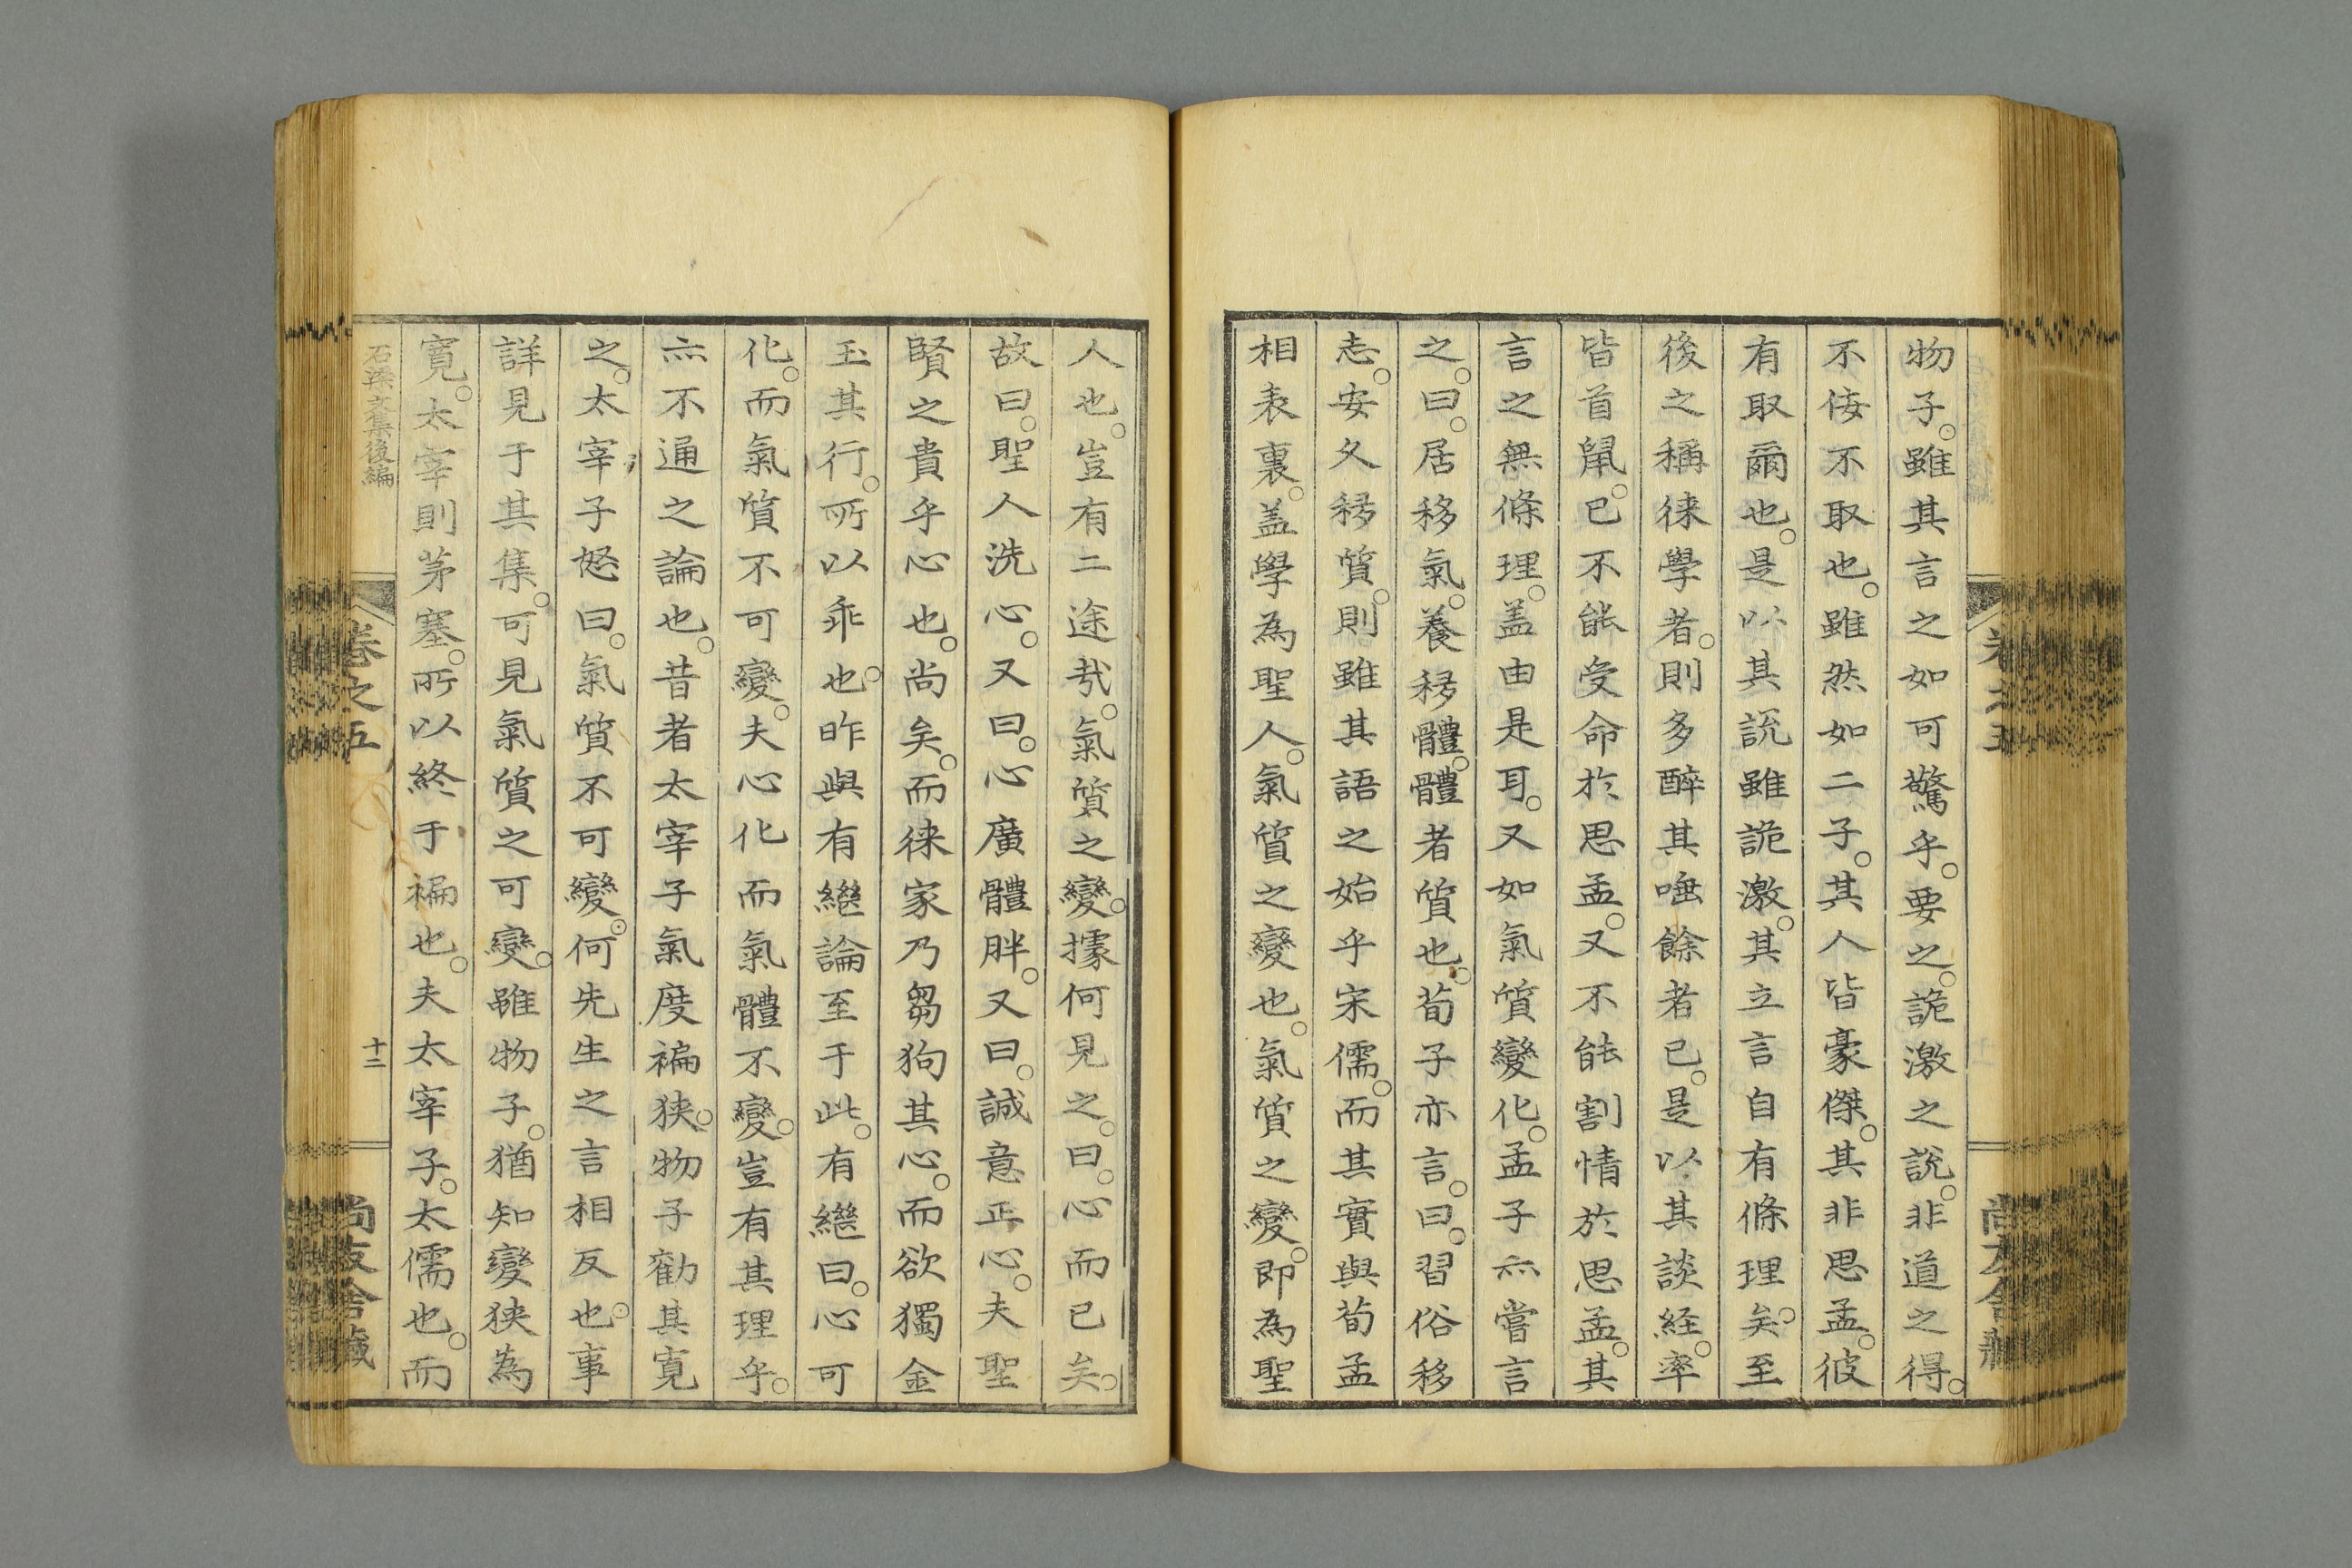 物子。雖其言之如可驚乎。要之。詭激之說。非道之得。
不侮不取也。雖然如二子。其人皆豪傑。其非思孟。彼
有取爾也。是以其說雖詭激。其立言自有條理矣。至
後之稱徠學者。則多醉其唾餘者已。是以其談経。率
皆首鼠。已不能受命於思孟。又不能割情於思孟。其
言之無條理。盖由是耳。又如氣質變化。孟子亦嘗言
之。曰。居移氣。養移體。體者質也。荀子亦言。曰。習俗移
志。安久移質。則雖其語之始乎宋儒。而其實與荀孟
相表裏。盖學為聖人。氣質之變也。氣質之變。即為聖
人也。豈有二途哉。氣質之變。據何見之。曰。心而已矣。
故曰。聖人洗心。又曰。心廣體胖。又曰。誠意正心。夫聖
賢之貴乎心也。尚矣。而徠家乃芻狗其心。而欲獨金
玉其行。所以乖也。昨與有繼論至于此。有繼曰。心可
化。而氣質不可變。夫心化而氣體不變。豈有其理乎。
亦不通之論也。昔者太宰子氣度褊狹。物子勸其寬
之。太宰子怒曰。氣質不可變。何先生之言相反也。事
詳見于其集。可見氣質之可變。雖物子。猶知變狹為
寬。太宰則茅塞。所以終于褊也。夫太宰子。太儒也。而
石梁文集後編
卷之五
十二
尚友舍藏